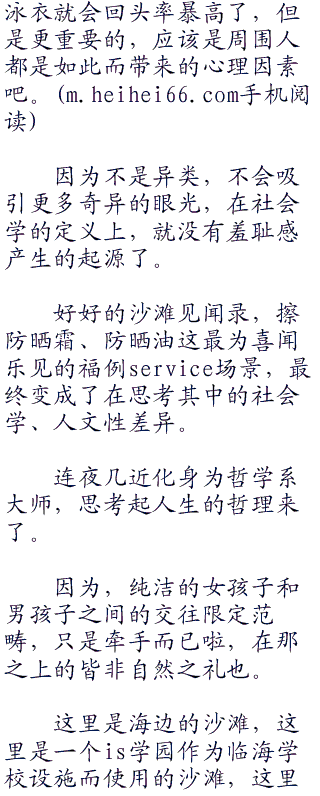 泳衣就会回头率暴高了，但
是更重要的，应该是周围人
都是如此而带来的心理因素
吧。(m.heihei66.com手机阅
读)
因为不是异类，不会吸
引更多奇异的眼光，在社会
学的定义上，就没有羞耻感
产生的起源了。
好好的沙滩见闻录，擦
防晒霜、防晒油这最为喜闻
乐见的福例service场景，最
终变成了在思考其中的社会
学、人文性差异。
连夜几近化身为哲学系
大师，思考起人生的哲理来
了。
因为，纯洁的女孩子和
男孩子之间的交往限定范
畴，只是牵手而已啦，在那
之上的皆非自然之礼也。
这里是海边的沙滩，这
里是一个is学园作为临海学
校设施而使用的沙滩，这里